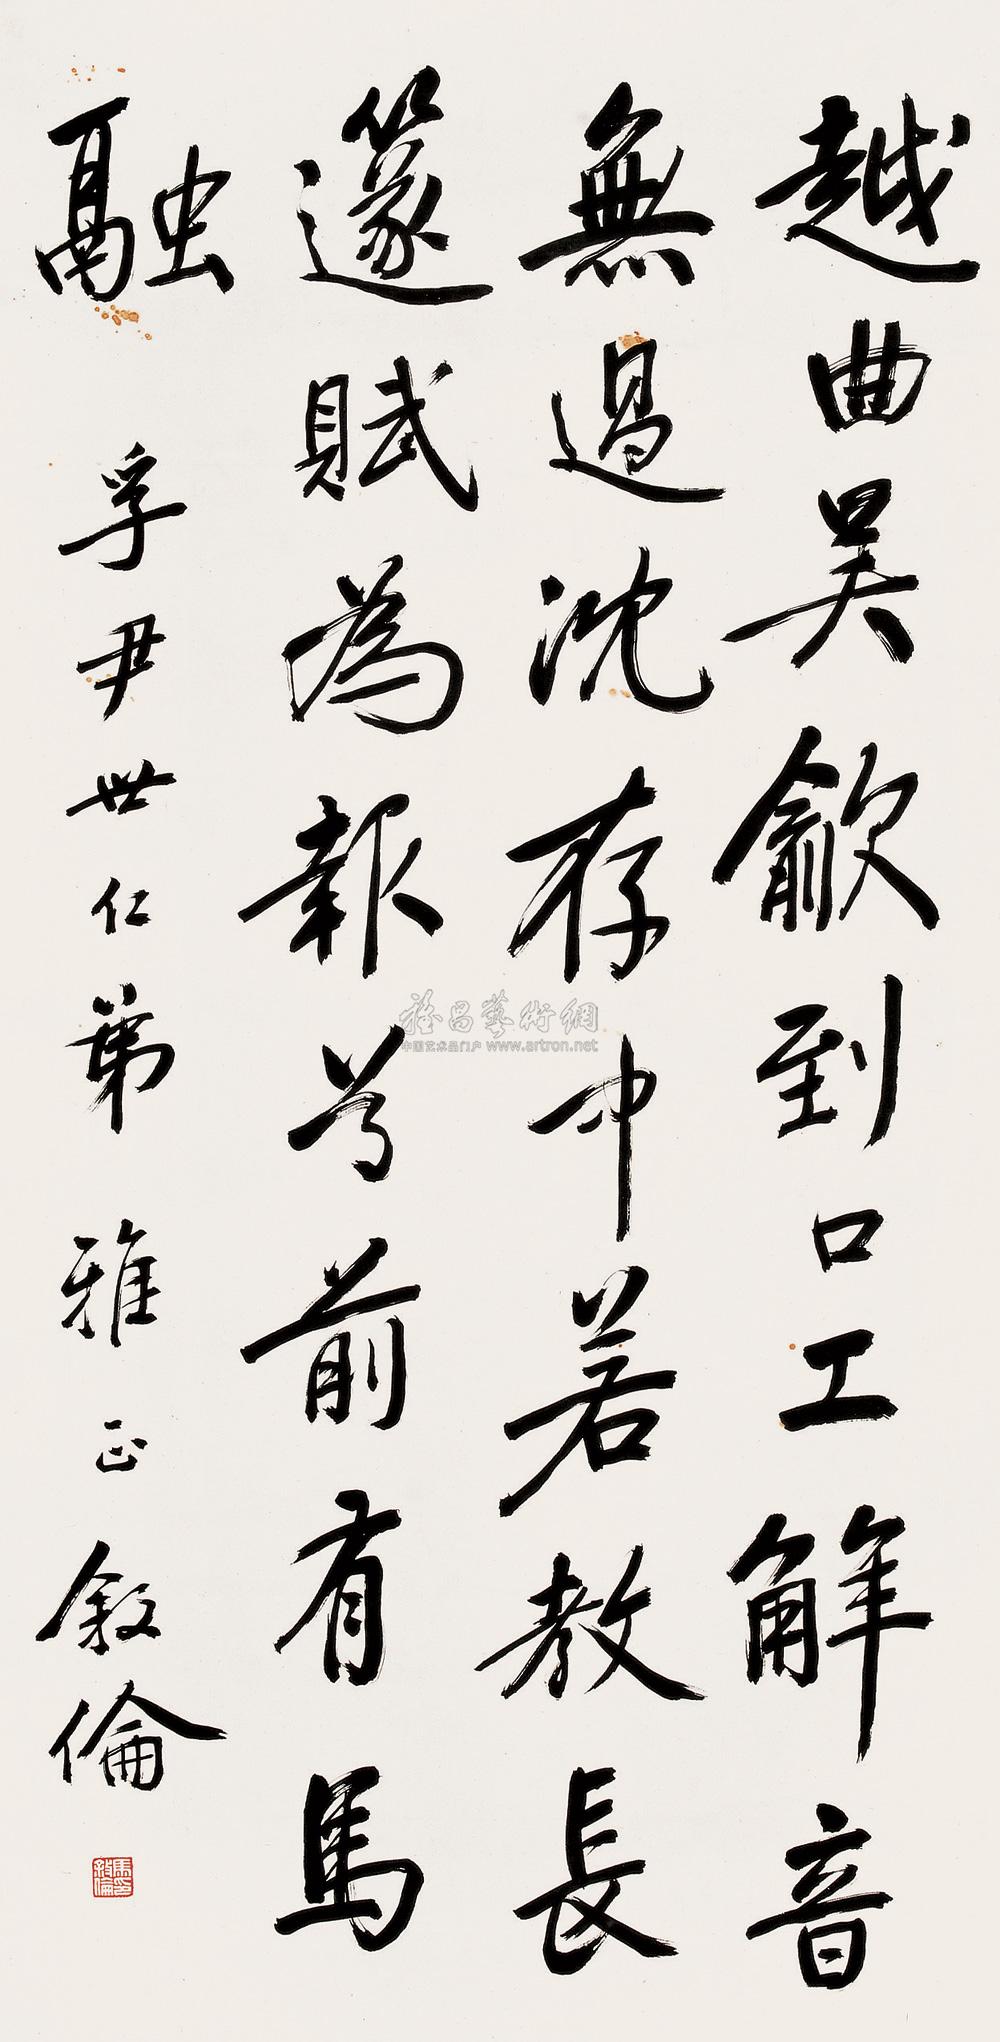 越曲吴歈到口工解音
無過沈存中若教長
篴賦為報兮前有馬
融 孚尹世仁弟 雅正 敘倫
馬叙倫印
雅昌藝術網
中国艺术品门户 www.artron.net